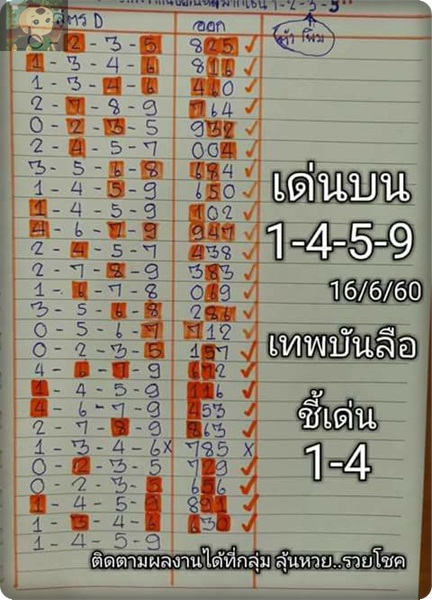 1-2-3-5
สูตร D ออก ตัวโพม
2 - 3 - 5 825 ✓
1 - 3 - 4 - 6 816 ✓
1 - 3 - 4 - 6 460 ✓
2 - 7 - 8 - 9 764 ✓
0 - 2 - 3 - 5 932 ✓
2 - 4 - 5 - 7 004 ✓
3 - 5 - 6 - 8 684 ✓
1 - 4 - 5 - 9 650 ✓
1 - 4 - 5 - 9 102 ✓
4 - 6 - 7 - 9 947 ✓
2 - 4 - 5 - 7 438 ✓
2 - 7 - 8 - 9 383 ✓
1 - 6 - 7 - 8 069 ✓
3 - 5 - 6 - 8 286 ✓
0 - 5 - 6 - 7 712 ✓
0 - 2 - 3 - 5 157 ✓
4 - 6 - 7 - 9 672 ✓
1 - 4 - 5 - 9 116 ✓
4 - 6 - 7 - 9 453 ✓
2 - 7 - 8 - 9 863 ✓
1 - 3 - 4 - 6 x 785 x
0 - 2 - 3 - 5 729 ✓
0 - 2 - 3 - 5 656 ✓
1 - 4 - 5 - 9 891 ✓
1 - 3 - 4 - 6 630 ✓
1 - 4 - 5 - 9
เด่นบน
1-4-5-9
16/6/60
เทพบันลือ
ชี้เด่น
1-4
ติดตามผลงานได้ที่กลุ่ม ลุ้นหวย..รวยโชค